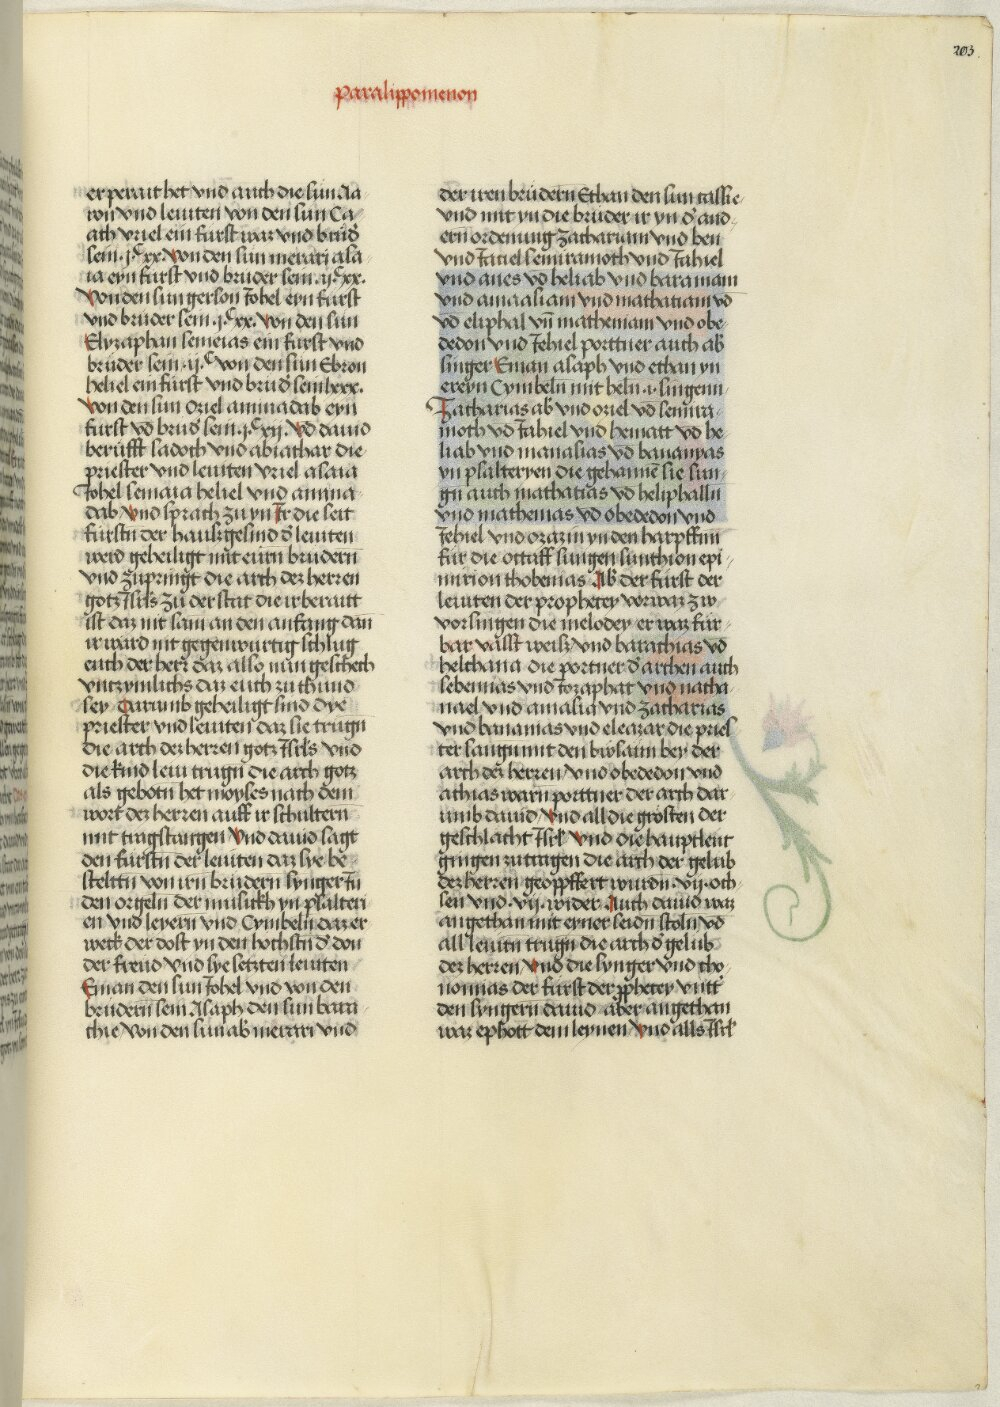 203
Paralippomenon
er perait het vnd auch die sun Aa-
ron vnd leuiten von den sun Ca-
ath vriel ein furst war vnd brud̉
sein .j.Cxx. Von den sun merari asa-
ia eyn furst vnd bruder sein .ij.Cxx.
Von den sun gerson Johel eyn furst
vnd bruder sein .j.Cxx. Von den sun
Elyzaphan semeias ein furst vnd
brüder sein .ij.C von den sun Ebron
heliel ein furst vnd brud̉ sein lxxx.
Von den sun Oriel aminadab eyn
furst vd̄ brud̉ sein .j.Cxij. Vd̄ dauid
berüfft sadoch vnd abiathar die
priester vnd leuiten vriel asaia
Johel semaia heliel vnd amina-
dab Vnd sprach zu yn Ir die seit
fürstn̄ der haußgesind d̉ leuiten
werd geheiligt mit eurn brudern
vnd zupringt die arch dez herren
gotz Isrl̄s zu der stat die ir beraitt
ist daz nit sam an den anfang dan
ir ward nit gegenwurtig schlug
euch der herr daz also nun geschech
vntzymlichs daz euch zu thund
sey Darumb geheiligt sind dye
priester vnd leuiten daz sie trugn̄
die arch dez herren gotz Isrl̄s vnd
die kind leui trugn̄ die arch gotz
als gebotn̄ het moyses nach dem
wort dez herren auff ir schultern
mit tragstangen Vnd dauid sagt
den fürstn̄ der leuiten daz sye be-
steltn̄ von irn brudern synger in
den orgeln der musickh yn psalteri
en vnd leyern vnd Cymbeln daz er
weck der dost yn den hochstn̄ d̉ don
der freud vnd sye setzten leuiten
Eman den sun Johel vnd von den
brudern sein Asaph den sun bara-
chie von den sun ab̉ merari vnd
der iren brudern Ethan den sun cassie-
vnd mit yn die bruder ir yn d̉ and-
ern ordenung zachariam vnd ben
vnd Jaziel semiramoth vnd Jahiel
vnd anes vd̄ heliab vnd baraniam
vnd amaasiam vnd mathatiam vd̄
vd̄ eliphal vn̄ matheniam vnd obe-
dedon vnd Jehiel porttner auch ab̉
singer Eman asaph vnd ethan yn
ereyn Cymbeln mit heln .a. singenn-
Zacharias ab̉ vnd oriel vd̄ semira-
moth vd̄ Jahiel vnd hematt vd̄ he-
liab vnd manasias vd̄ bananyas
yn psalteryen die gehannē sie sun-
gn̄ auch mathatias vd̄ heliphallu
vnd mathenias vd̄ obededon vnd
Jehiel vnd orazin yn den harpffnn
für die ottaff sungen sunthion epi-
nirion thobenias Ab̉ der fürst der
leuiten der prophetey vorwaz zw
vorsingen die melodey er waz für-
bar vasst weisz vnd barathias vd̄
helthana die portner d̉ archen auch
sebennias vnd Jozaphat vnd natha-
nael vnd amasia vnd zacharias
vnd bananias vnd eleazar die pries-
ter sangn̄ mit den busaun bey der
arch dez herren vnd obededon vnd
athias warn porttner der arch dar-
umb dauid Vnd all die grosten der
geschlacht Isrl̄ Vnd die hauptleut
gingen zu tragen die arch der gelub
dez herren geopffert wurdn̄ .vij. och-
sen vnd .vij. wider Auch dauid waz
angethan mit eyner seidn̄ stoln vd̄
all leuitn̄ trugn̄ die arch d̉ gelub
dez herren Vnd die synger vnd tho-
nonias der fürst der pphetey vntt̉
den syngern dauid aber angethan
waz ephott dem leynen Vnd alls Isrl̄